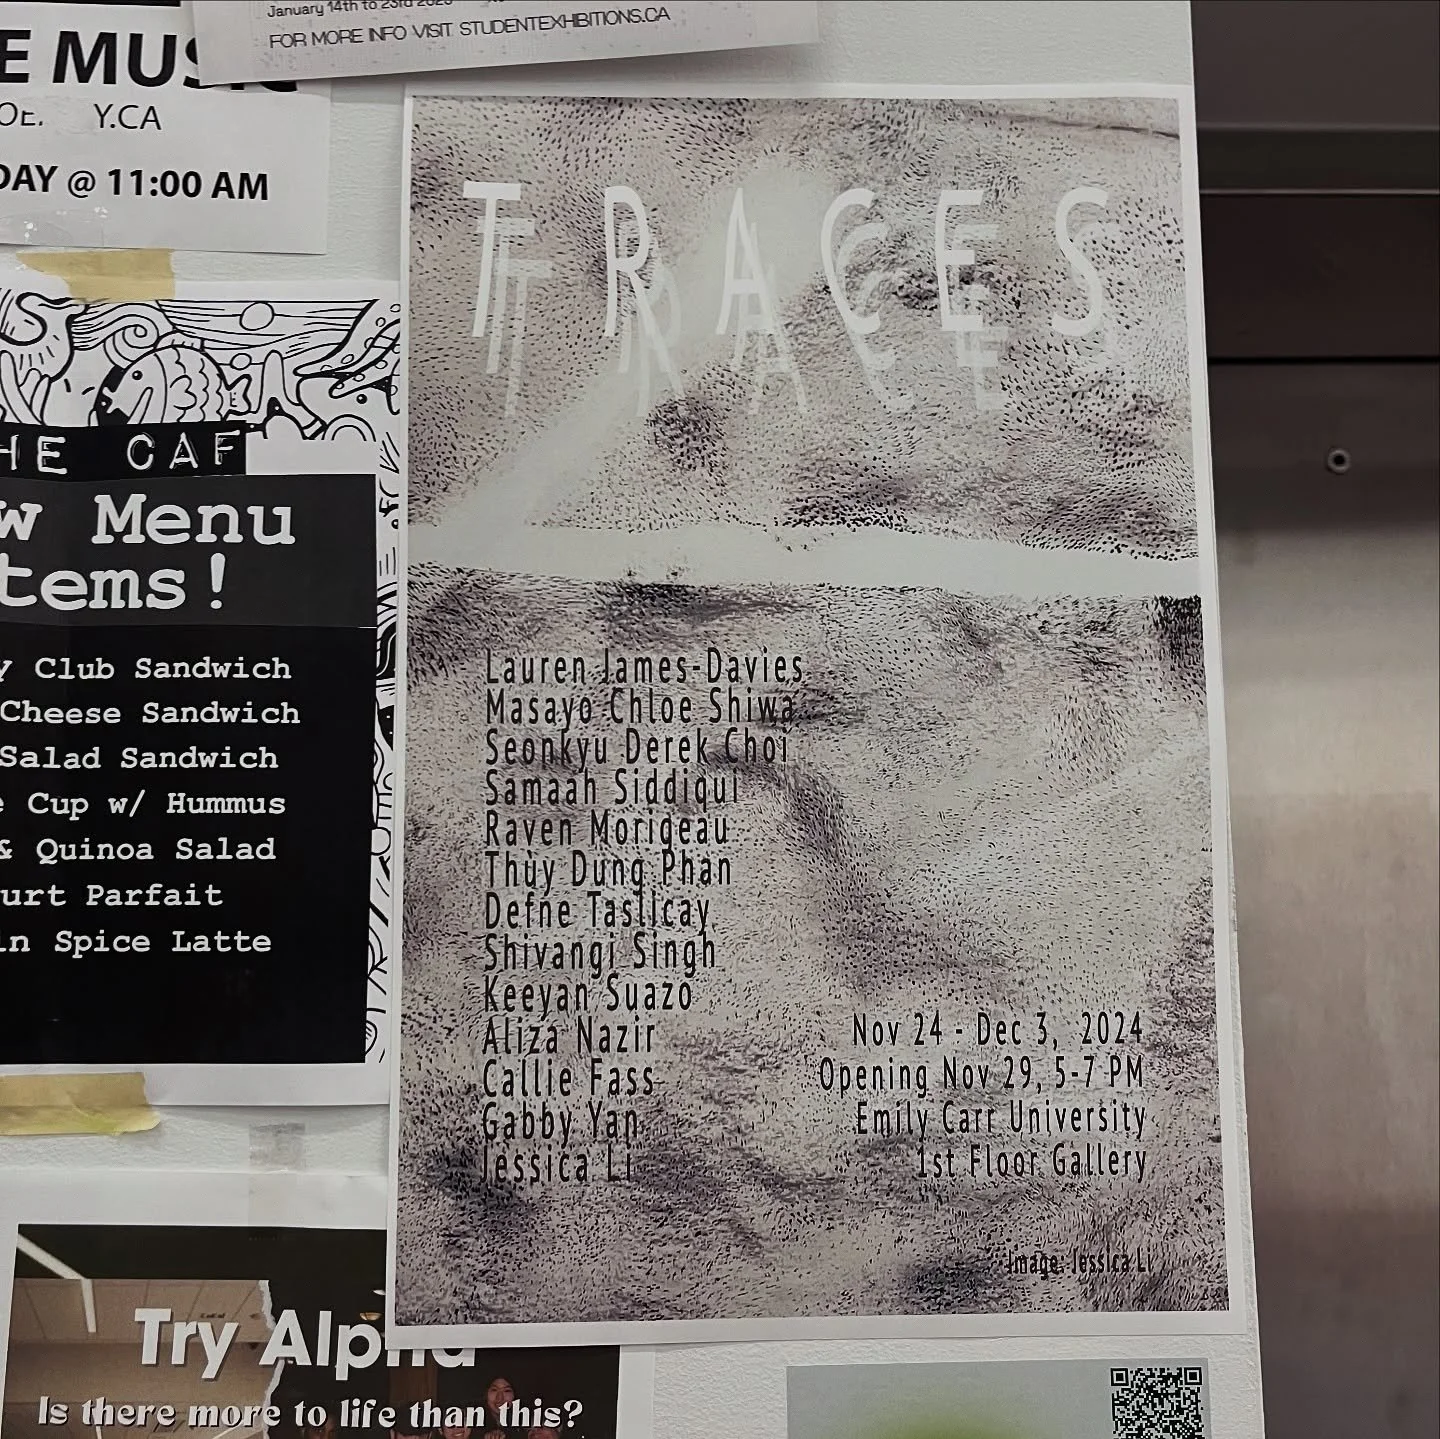 January 14th to 23rd
FOR MORE INFO VISIT STUDENTEXHIBITIONS.CA
E MUSIC
Y.CA
DAY @ 11:00 AM
HE CAF
w Menu
tems!
y Club Sandwich
Cheese Sandwich
Salad Sandwich
e Cup w/ Hummus
& Quinoa Salad
urt Parfait
in Spice Latte
TRACES
Lauren James-Davies
Masayo Chloe Shiwa
Seonkyu Derek Choi
Samaah Siddiqui
Raven Morigeau
Thùy Dung Phan
Defne Taslicay
Shivangi Singh
Keeyan Suazo
Aliza Nazir
Callie Fass
Gabby Yan
Jessica Li
Nov 24 - Dec 3, 2024
Opening Nov 29, 5-7 PM
Emily Carr University
1st Floor Gallery
Image: Jessica Li
Try Alpha
Is there more to life than this?